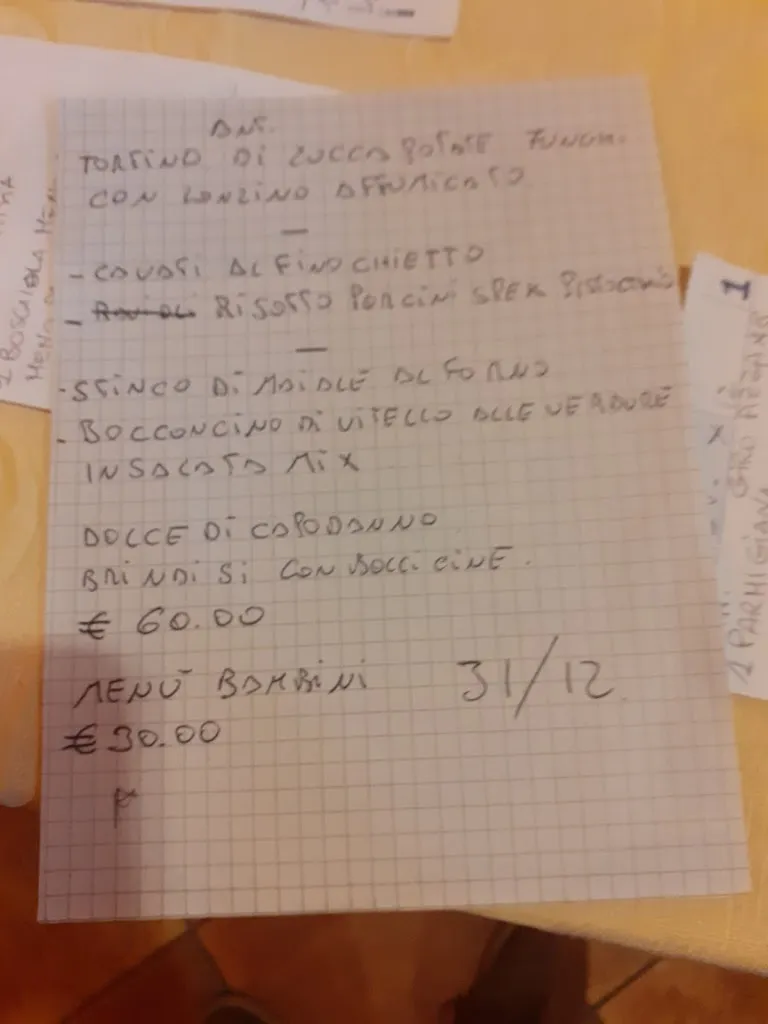 ANT.
TORTINO DI ZUCCA PATATE FUNGHI
CON LONZINO AFFUMICATO
—
- CAVATI AL FINOCHIETTO
- RAVIOLI RISOTTO PORCINI SPEK PISTACCHIO
—
- STINCO DI MAIALE AL FORNO
- BOCCONCINO DI VITELLO ALLE VERDURE
INSALATA MIX
DOLCE DI CAPODANNO
BRINDISI CON BOLLICINE.
€ 60.00
MENÙ BAMBINI 31/12
€ 30.00
1 BOSCAIOLA
1
GIRO
1 PARMIGIANA